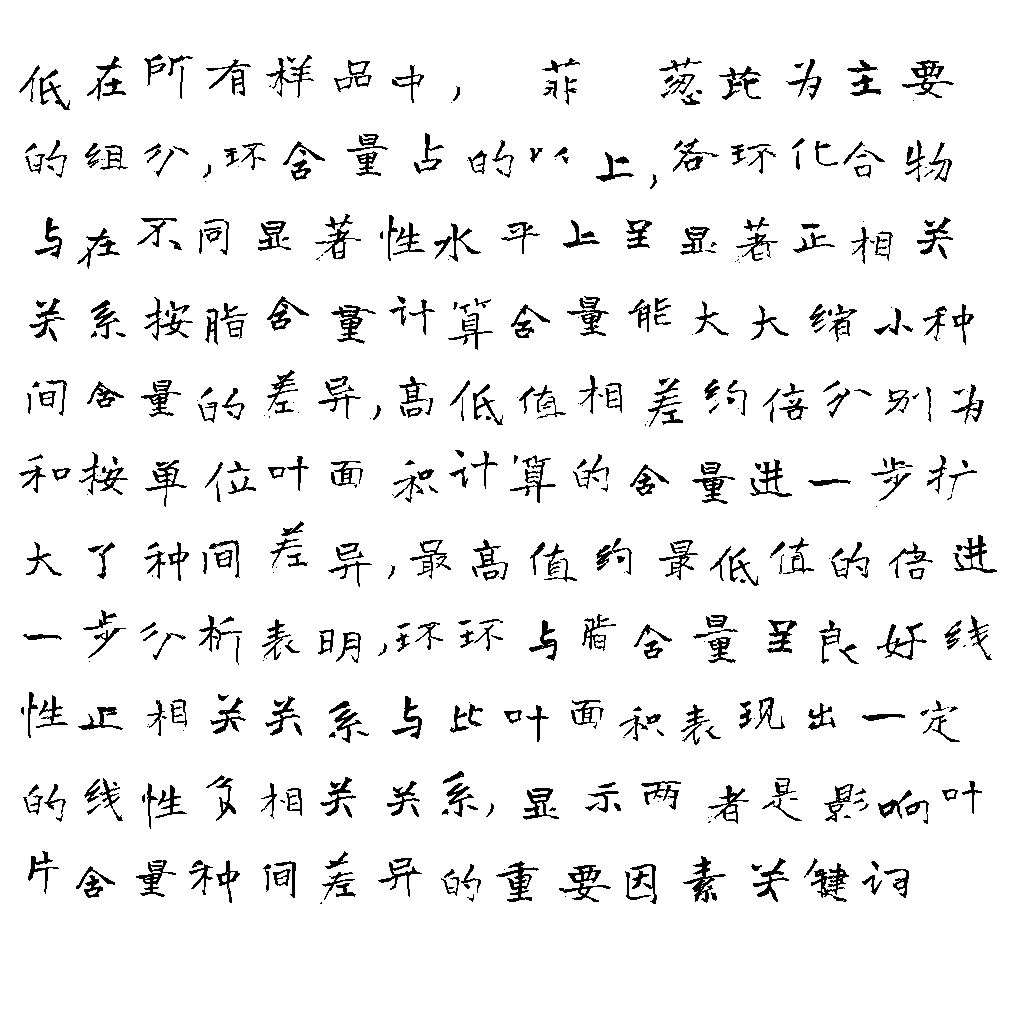 低在所有样品中，菲 葱芘为主要
的组分,环含量占的以上,各环化合物
与在不同显著性水平上呈显著正相关
关系按脂含量计算含量能大大缩小种
间含量的差异,高低值相差约倍分别为
和按单位叶面积计算的含量进一步扩
大了种间差异,最高值约最低值的倍进
一步分析表明,环环与脂含量呈良好线
性正相关关系与比叶面积表现出一定
的线性负相关关系,显示两者是影响叶
片含量种间差异的重要因素关键词